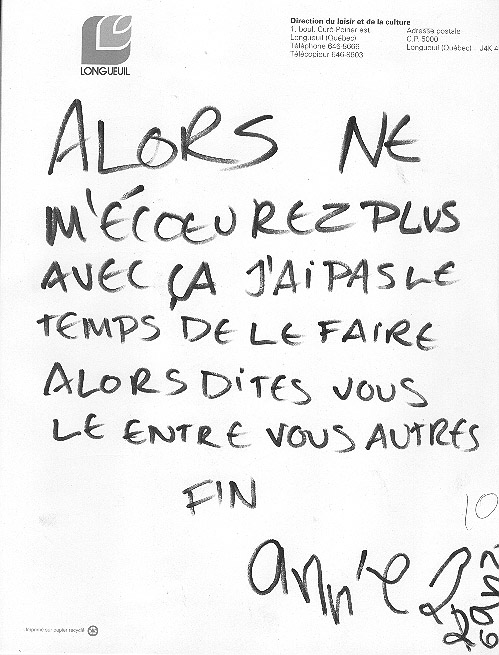 LONGUEUIL
Direction du loisir et de la culture
1, boul. Curé-Poirier est
Longueuil (Québec)
Téléphone 646-8666
Télécopieur 646-8903
Adresse postale
C.P. 5000
Longueuil (Québec) J4K 4
ALORS NE
M'ÉCOEUREZ PLUS
AVEC ÇA J'AI PAS LE
TEMPS DE LE FAIRE
ALORS DITES VOUS
LE ENTRE VOUS AUTRES
FIN
10
Imprimé sur papier recyclé